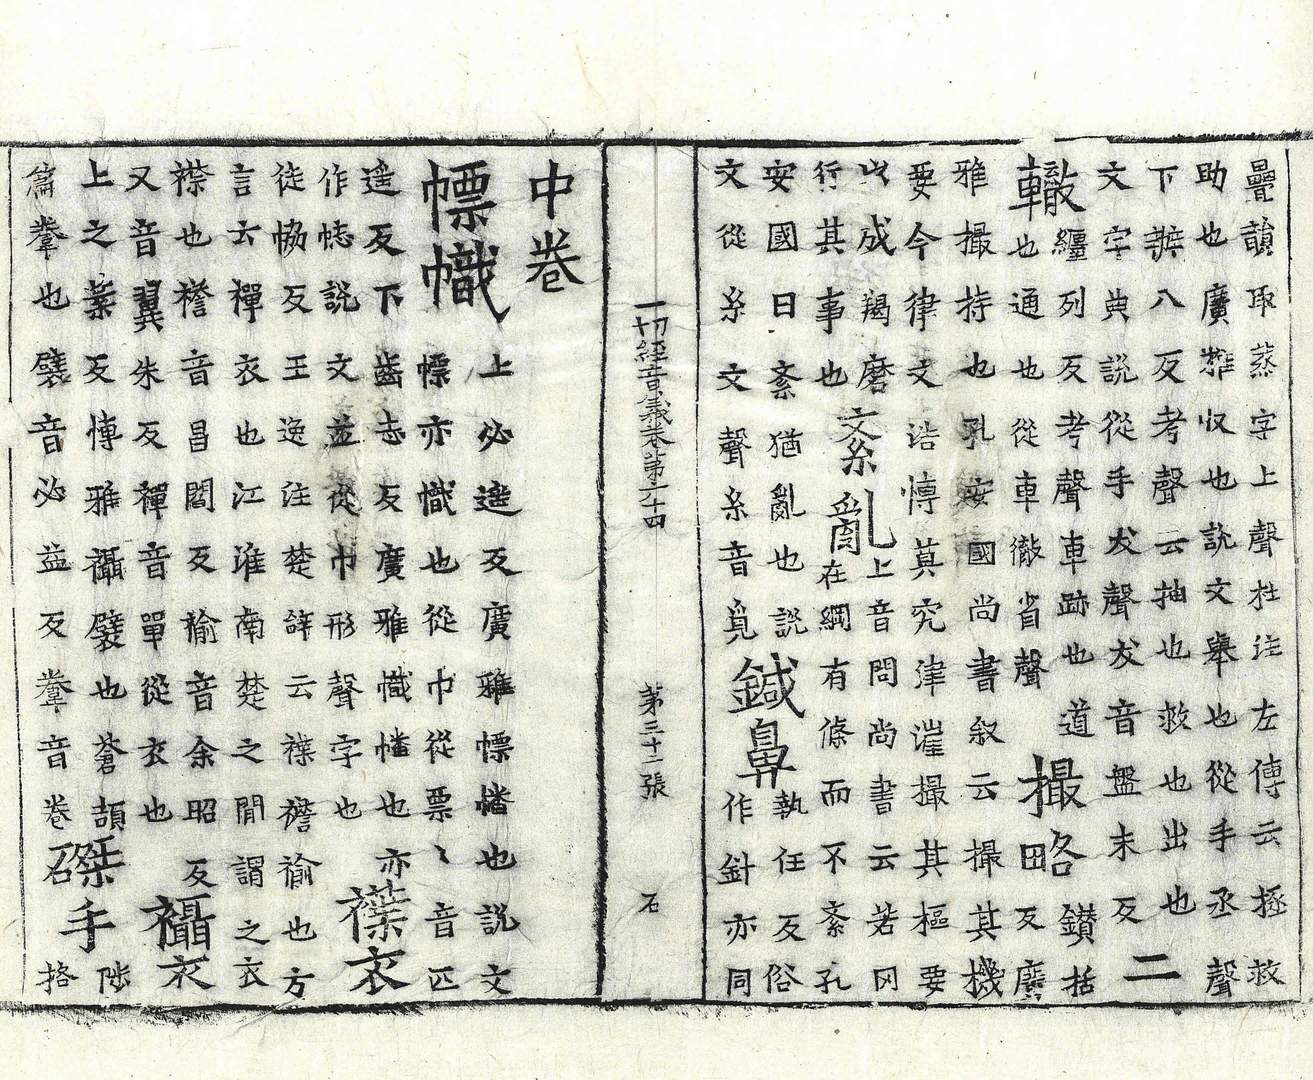 疊韻取蒸字上聲杜注左傳云拯救
助也廣雅収也說文舉也從手丞聲
下辦八反考聲云抽也救也出也
文字典說從手犮聲犮音盤末反
二
轍
纏列反考聲車跡也道
也通也從車徹省聲
撮略
鑚括
田反廣
雅撮持也孔安國尚書叙云撮其機
要今律文浩博莫究津漄撮其樞要
以成羯磨
行其事也
紊亂
上音問尚書云若冈
在綱有條而不紊孔
安國曰紊猶亂也說
文從糸文聲糸音覓
鍼鼻
執任反俗
作針亦同
一切經音義卷第六十四 第三十二張 石
中卷
幖幟
上必遥反廣雅幖幡也說文
幖亦幟也從巾從票〻音匹
遥反下齒志反廣雅幟幡也亦
作說文益從巾形聲字也
褋衣
徒協反王逸注楚辞云褋襜褕也方
言云襌衣也江淮南楚之間謂之衣
褋也襜音昌閻反褕音余昭反
又音翼朱反襌音單從衣也
襵衣
上之葉反博雅襵襞也蒼頡
篇韏也襞音必益反韏音卷
磔手
陟
格